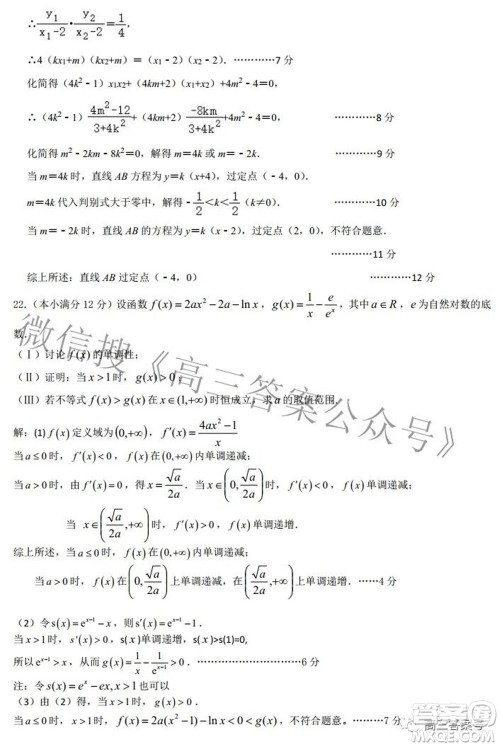 ∴ y₁/(x₁-2)·y₂/(x₂-2)=1/4.
∴4（kx₁+m）（kx₂+m）＝（x₁﹣2）（x₂﹣2）. …………7 分
化简得（4k²﹣1）x₁x₂+（4km+2）（x₁+x₂）+4m²﹣4＝0,
∴（4k²﹣1）(4m²-12)/(3+4k²)+（4km+2）(-8km)/(3+4k²)+4m²﹣4＝0, …………8 分
化简得 m²﹣2km﹣8k²＝0，解得 m＝4k 或 m＝﹣2k. …………9 分
当 m＝4k 时，直线 AB 方程为 y＝k（x+4），过定点（﹣4，0）.
m＝4k 代入判别式大于零中，解得﹣1/2＜k＜1/2（k≠0）. …………10 分
当 m＝﹣2k 时，直线 AB 方程为 y＝k（x﹣2），过定点（2，0），不符合题意.
…………11 分
综上所述：直线 AB 过定点（﹣4，0） …………12 分
22.（本小满分 12 分）设函数 f(x)=2ax²-2a-ln x，g(x)=1/x-e/eˣ，其中 a∈R，e 为自然对数的底
数.
（Ⅰ）讨论 f(x) 的单调性；
（Ⅱ）证明：当 x>1 时，g(x)>0；
（Ⅲ）若不等式 f(x)>g(x) 在 x∈(1,+∞) 时恒成立，求 a 的取值范围.
解：(1) f(x) 定义域为 (0,+∞)，f′(x)=(4ax²-1)/x
当 a≤0 时，f′(x)<0，f(x) 在 (0,+∞) 内单调递减；
当 a>0 时，由 f′(x)=0，得 x=√a/2a. 当 x∈(0,√a/2a) 时，f′(x)<0，f(x) 单调递减；
当 x∈(√a/2a,+∞) 时，f′(x)>0，f(x) 单调递增.
综上所述，当 a≤0 时，f(x) 在 (0,+∞) 内单调递减；
当 a>0 时，f(x) 在 (0,√a/2a) 上单调递减，在 (√a/2a,+∞) 上单调递增. ……4 分
（2）令 s(x)=eˣ⁻¹-x，则 s′(x)=eˣ⁻¹-1.
当 x>1 时，s′(x)>0，s(x)单调递增，s(x)>s(1)=0,
所以 eˣ⁻¹>x，从而 g(x)=1/x-1/eˣ⁻¹>0. ………………6 分
注：令 s(x)=eˣ-ex,x>1 也可以
（3）由（2）得，当 x>1 时，g(x)>0.
当 a≤0 时，x>1 时，f(x)=2a(x²-1)-ln x<0<g(x)，不符合题意. ……7 分
微信搜《高三答案公众号》
高三答案号